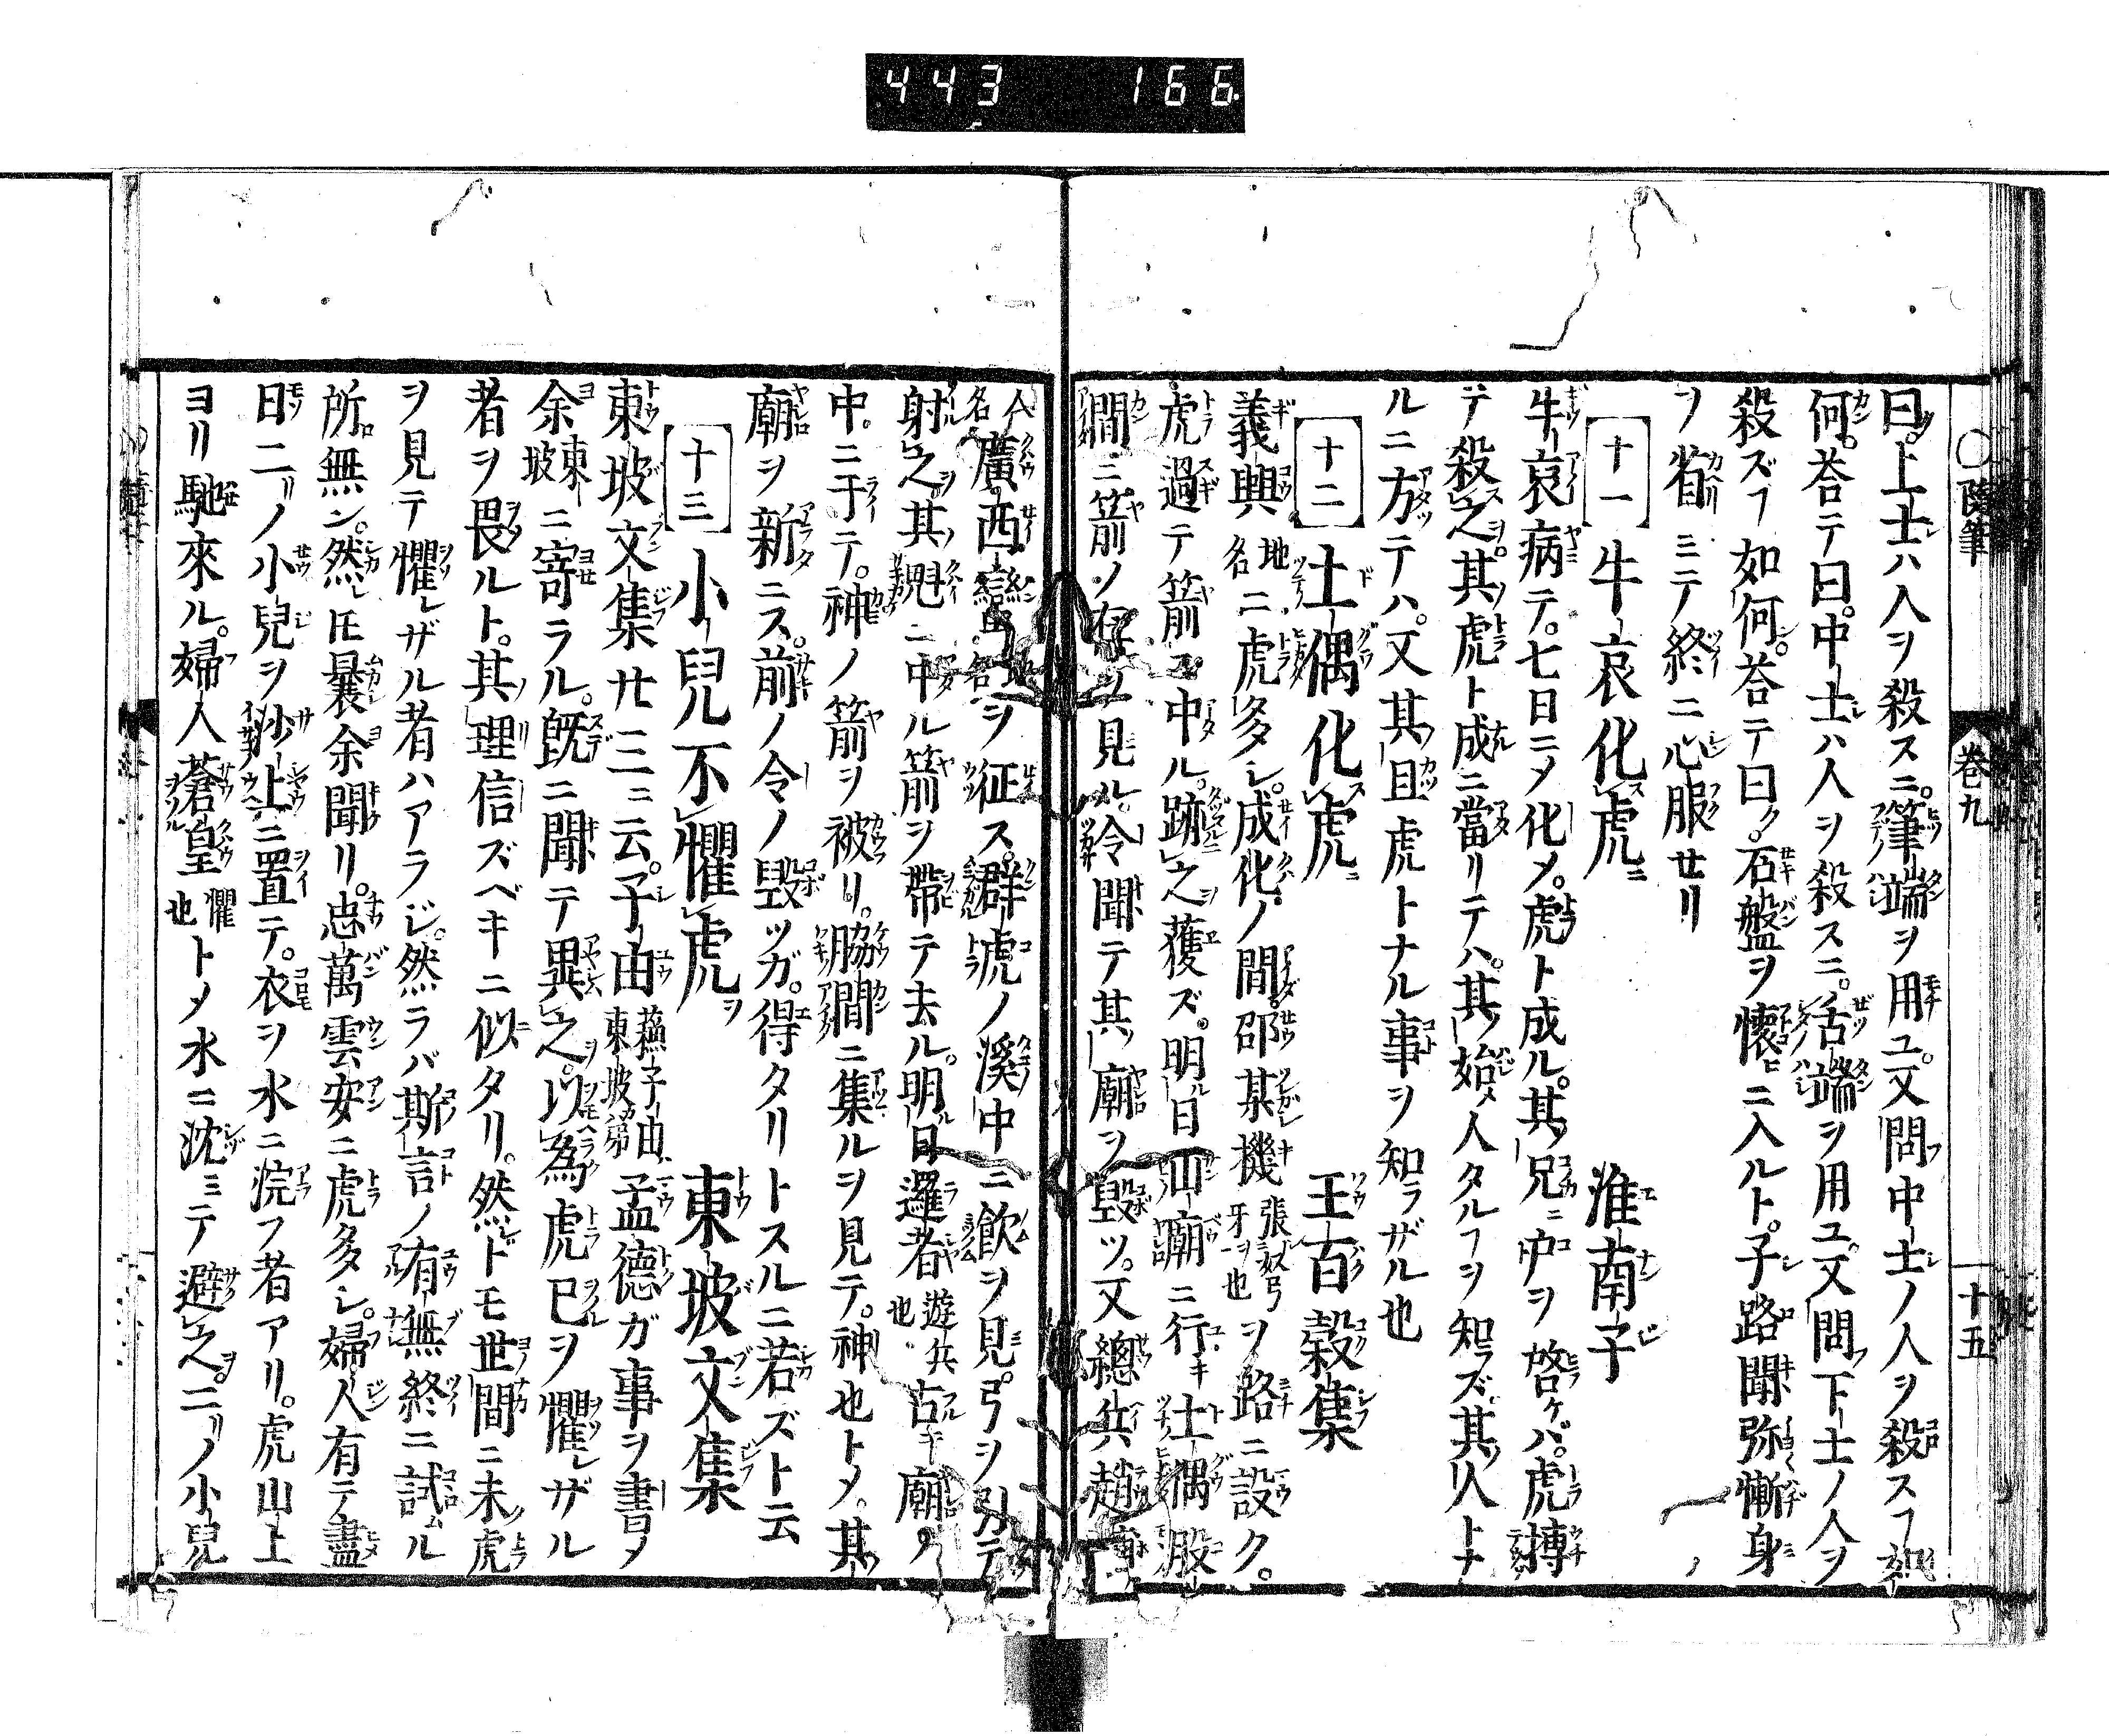 443 166
〇隨筆 卷九 十五
曰。上士ハ人ヲ殺スニ。筆端ヲ用ユ。又問中士ノ人ヲ殺スヿ如
何。荅テ曰。中士ハ人ヲ殺スニ。舌端ヲ用ユ。又問下士ノ人ヲ
殺ズヿ如何。荅テ曰ク。石盤ヲ懷ニ入ルト。子路聞弥慚身
ヲ省ミテ終ニ心服せリ
十一 牛哀化虎ニ 淮南子
牛哀病テ。七日ニメ化メ。虎ト成ル。其兄ニ戸ヲ啓ケバ。虎搏
テ殺之ヲ。其虎ト成ニ當リテハ。其始メ人タルヿヲ知ラズ。其人トナ
ルニ方テハ。又其且虎トナル事ヲ知ラザル也
十二 土偶化虎ニ 王百穀集
義興地名ニ虎多シ。成化ノ間。邵某機張奴弓牙ヲ也ヲ路ニ設ク。
虎過テ箭ニ中ル。跡之ヲ獲ズ。明日山廟ニ行キ土偶股
間ニ箭ノ有ヲ見ル。令聞テ其廟ヲ毀ツ。又總兵趙
人名廣西蠻地名ヲ征ス。群虎ノ溪中ニ飲ヲ見。弓ヲ引テ
射之ヲ。其魁ニ中ル箭ヲ帶テ去ル。明日邏者遊兵也古キ廟ノ
中ニ于テ。神ノ箭ヲ被リ。脇間ニ集ルヲ見テ。神也トメ。其
廟ヲ新ニス。前ノ令ノ毀ツガ。得タリトスルニ若ズト云
十三 小兒不懼虎ヲ 東坡文集
東坡文集廿三ニ云。子由蘓子由東坡カ弟孟德ガ事ヲ書メ
余東坡ニ寄ラル。既ニ聞テ異之ヲ。以為虎已ヲ懼レザル
者ヲ畏ルト。其理信ズベキニ似タリ。然ドモ世間ニ未虎
ヲ見テ懼レザル者ハアラジ。然ラバ斯言ノ有無終ニ試ル
所無ン。然レ𪜈曩余聞リ。忠萬雲安ニ虎多シ。婦人有テ晝
日ニ二リノ小兒ヲ沙上ニ置テ。衣ヲ水ニ浣フ者アリ。虎山上
ヨリ馳來ル。婦人蒼皇懼也トメ水ニ沈ミテ避之ヲ。二リノ小兒